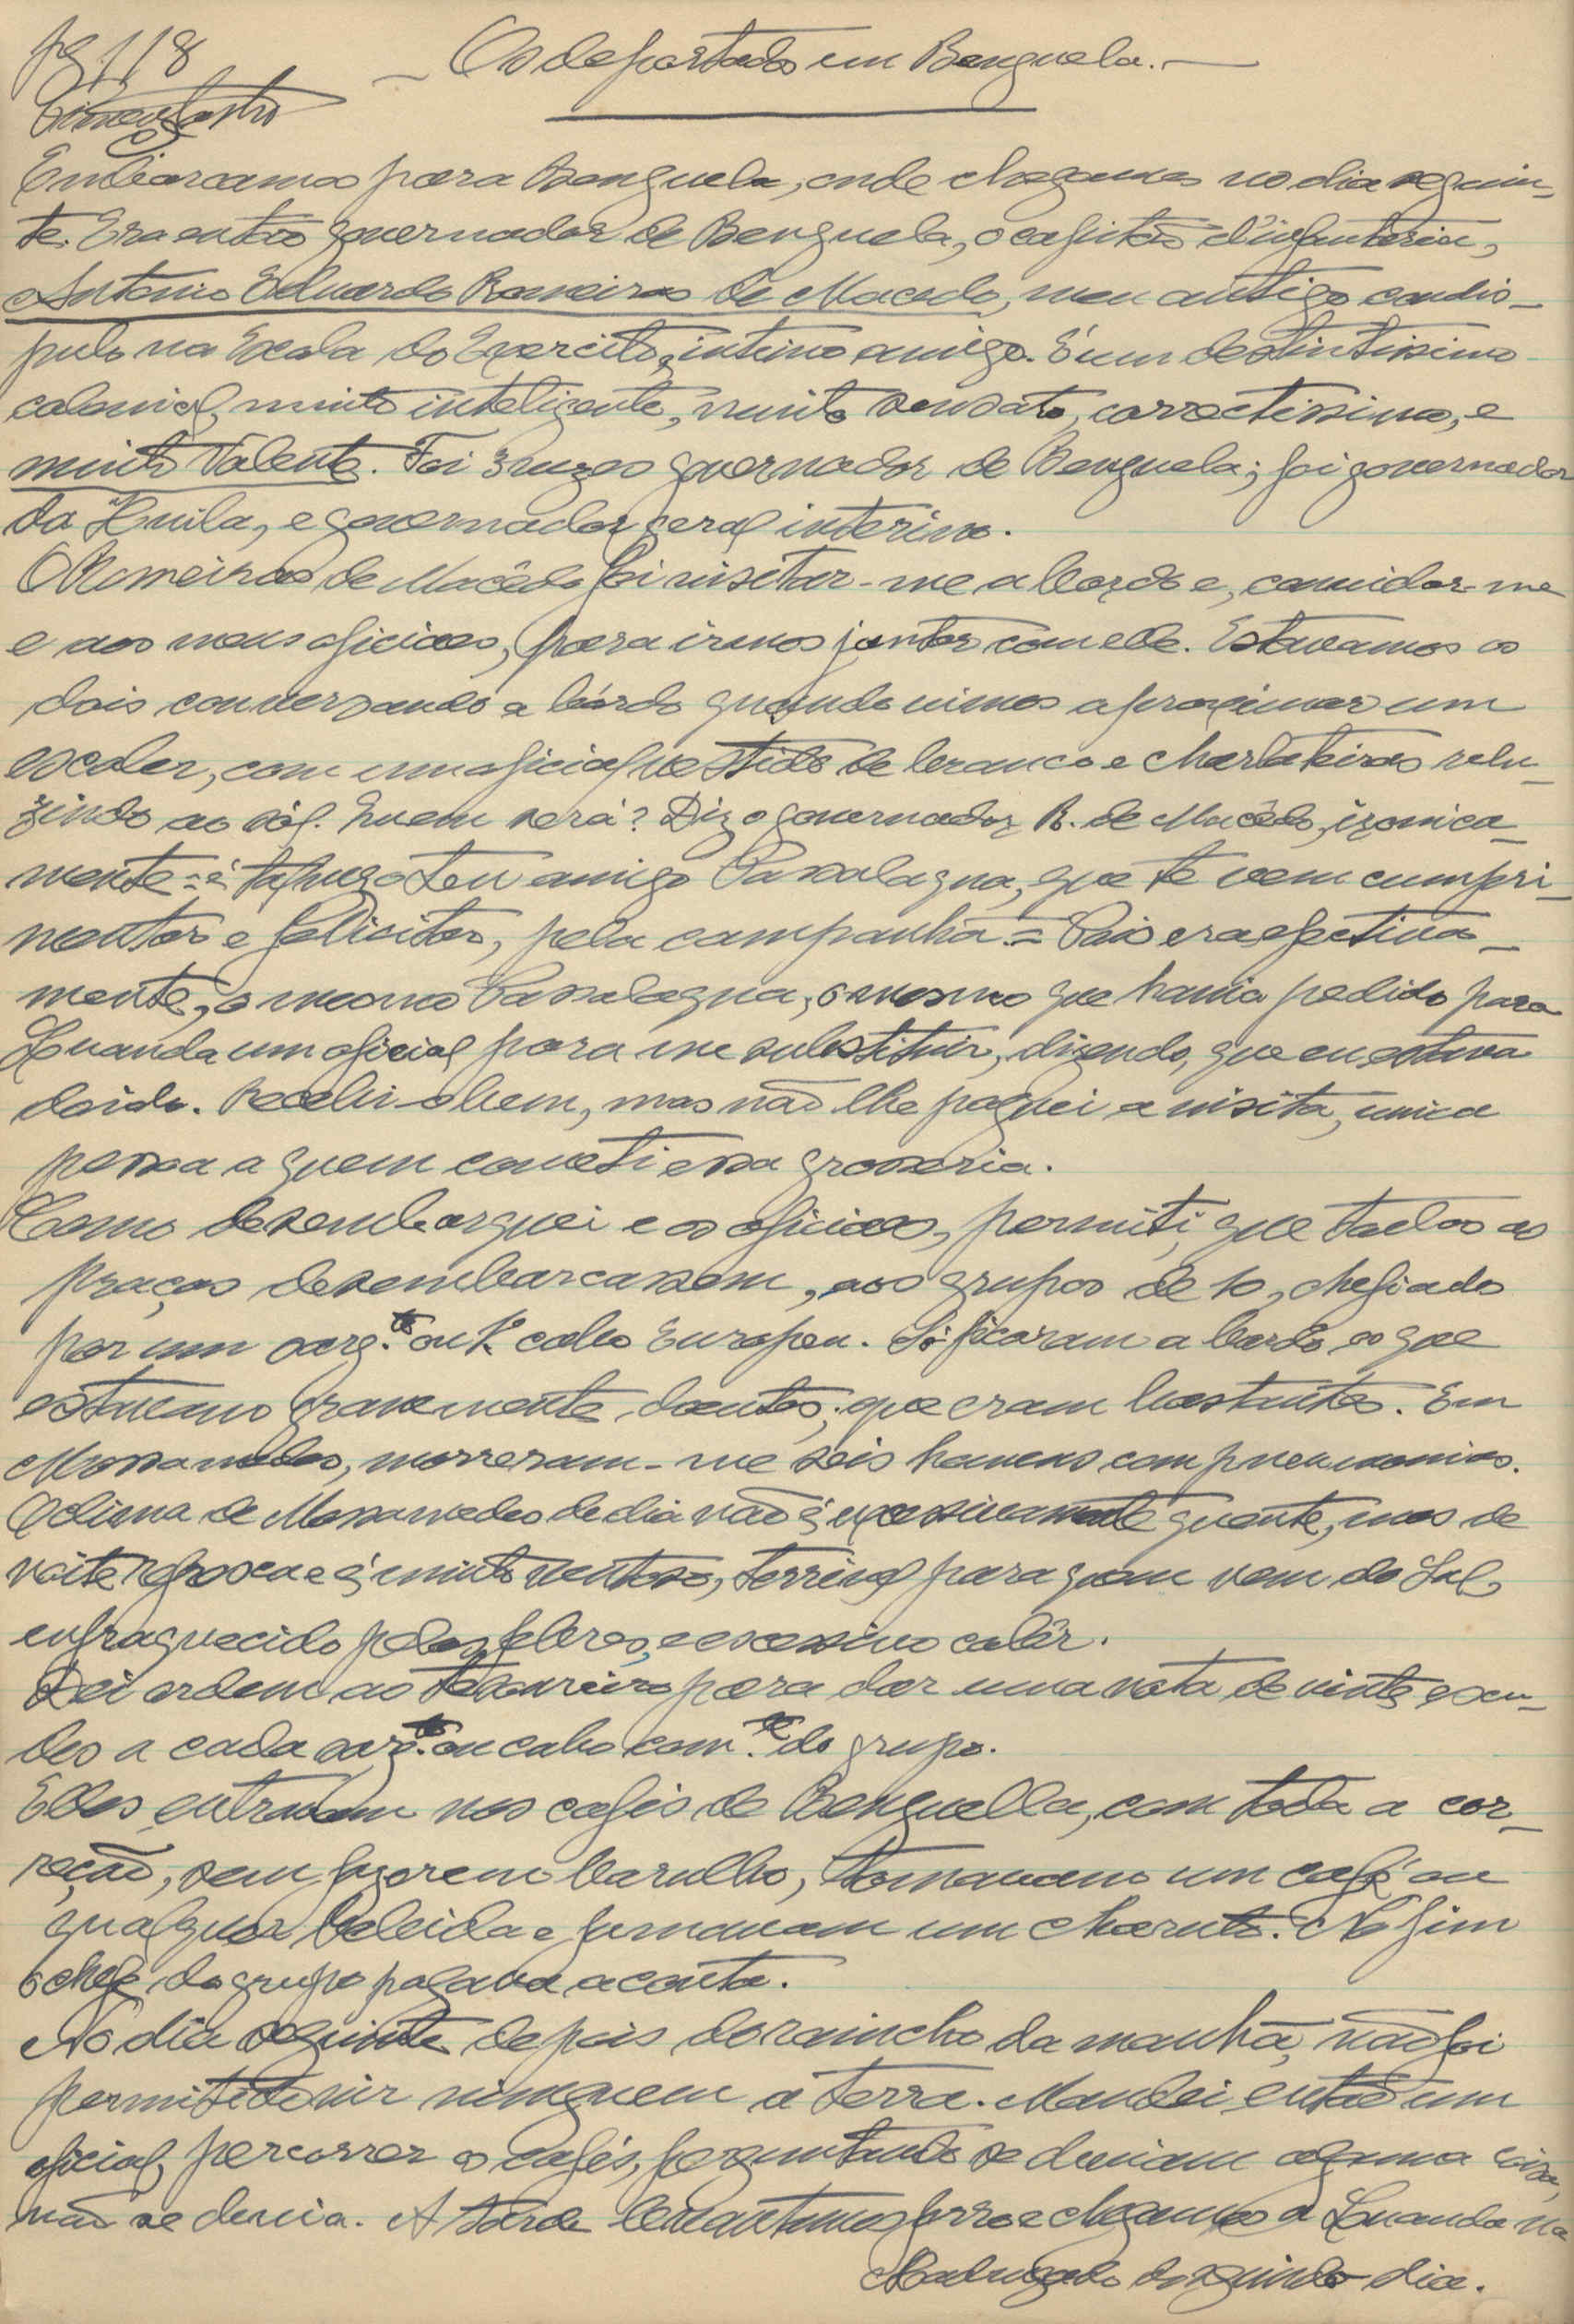 Pg 118
- Os deportados em Benguela. -
Embarcamos para Benguela, onde chegamos no dia seguin-
te. Era então governador de Benguela, o capitão d'infanteria,
Antonio Eduardo Romeiras de Macedo, meu antigo condis-
pulo na Escola do Exercito, intimo amigo. É um destintissimo
colonial, muito inteligente, muito sensato, correctissimo, e
muito valente. Foi 3 vezes governador de Benguela; foi governador
da Huila, e governador geral interino.
O Romeiras de Macêdo foi visitar-me a bordo e, convidar-me
e aos meus oficiaes, para irmos jantar com elle. Estavamos os
dois conversando a bórdo quando vimos aproximar um
escaler, com um oficial vestido de branco e charlateiras relu-
zindo ao sól. Quem será? Diz o governador R. de Macêdo, ironica-
mente = é talvez o teu amigo Passalagua, que te vem cumpri-
mentar e felicitar, pela campanha = Pois era efectiva-
mente, o mesmo Passalagua, o mesmo que havia pedido para
Luanda um oficial para me substituir, dizendo, que eu estava
doido. Recebi-o bem, mas não lhe paguei a visita, unica
pessoa a quem cometi essa grosseria.
Como desembarquei e os oficiaes, permiti, que todas as
praças desembarcassem, aos grupos de 10, chefiados
por um sarg.to ou 1º cabo Europeu. Só ficaram a bordo os que
estavam gravemente doentes, que eram bastantes. Em
Mossamedes, morreram-me seis homens com pneumonias.
O clima de Mossamedes de dia não é excessivamente quente, mas de
noite refresca e é muito ventoso, terrivel para quem vem do Sul,
enfraquecido pelas febres, e excessivo calôr.
Dei ordem ao tesoureiro para dar uma nota de vinte escu-
dos a cada sarg.to ou cabo com.te do grupo.
Elles entravam nos cafés de Benguella, com toda a cor-
reção, sem fazerem barulho, tomavam um café ou
qualquer bebida e fumavam um charuto. No fim
o chefe do grupo pagava a conta.
No dia seguinte depois do rancho da manhã, não foi
permitido vir ninguem a terra. Mandei então um
oficial, percorrer os cafés, perguntando se deviam alguma coisa,
não se devia. A tarde levantamos ferro e chegamos a Luanda na
Madrugada do seguinte dia.